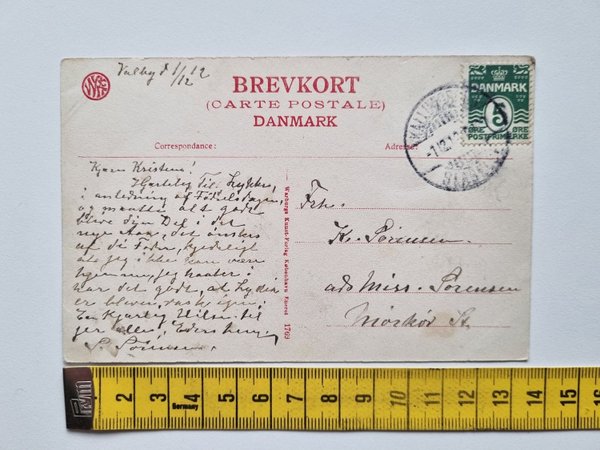 Valby d 1/12 12
BREVKORT
(CARTE POSTALE)
DANMARK
Correspondance:
Adresse:
DANMARK
5
ØRE
ØRE
POSTFRIMÆRKE
Kjære Kristine!
Hjertelig Til Lykke,
i anledning af Fødselsdagen,
og alt godt
blive din Del i det
nye Aar, det ønskes
af din kjedeligt
at jeg ikke kan være
hjemme, jeg haaber i
har det godt, at Lydia
er bleven rask igen,
En Kjærlig Hilsen til
jer alle, Eders
S. Sørensen.
Warburgs Kunst-Forlag København Eneret 1769
Frk.
K. Sørensen.
ads Miss. Sørensen
Mørkøv St.
2 3 4 5 6 7 8 9 10 11 12 13 14 15 16
Germany